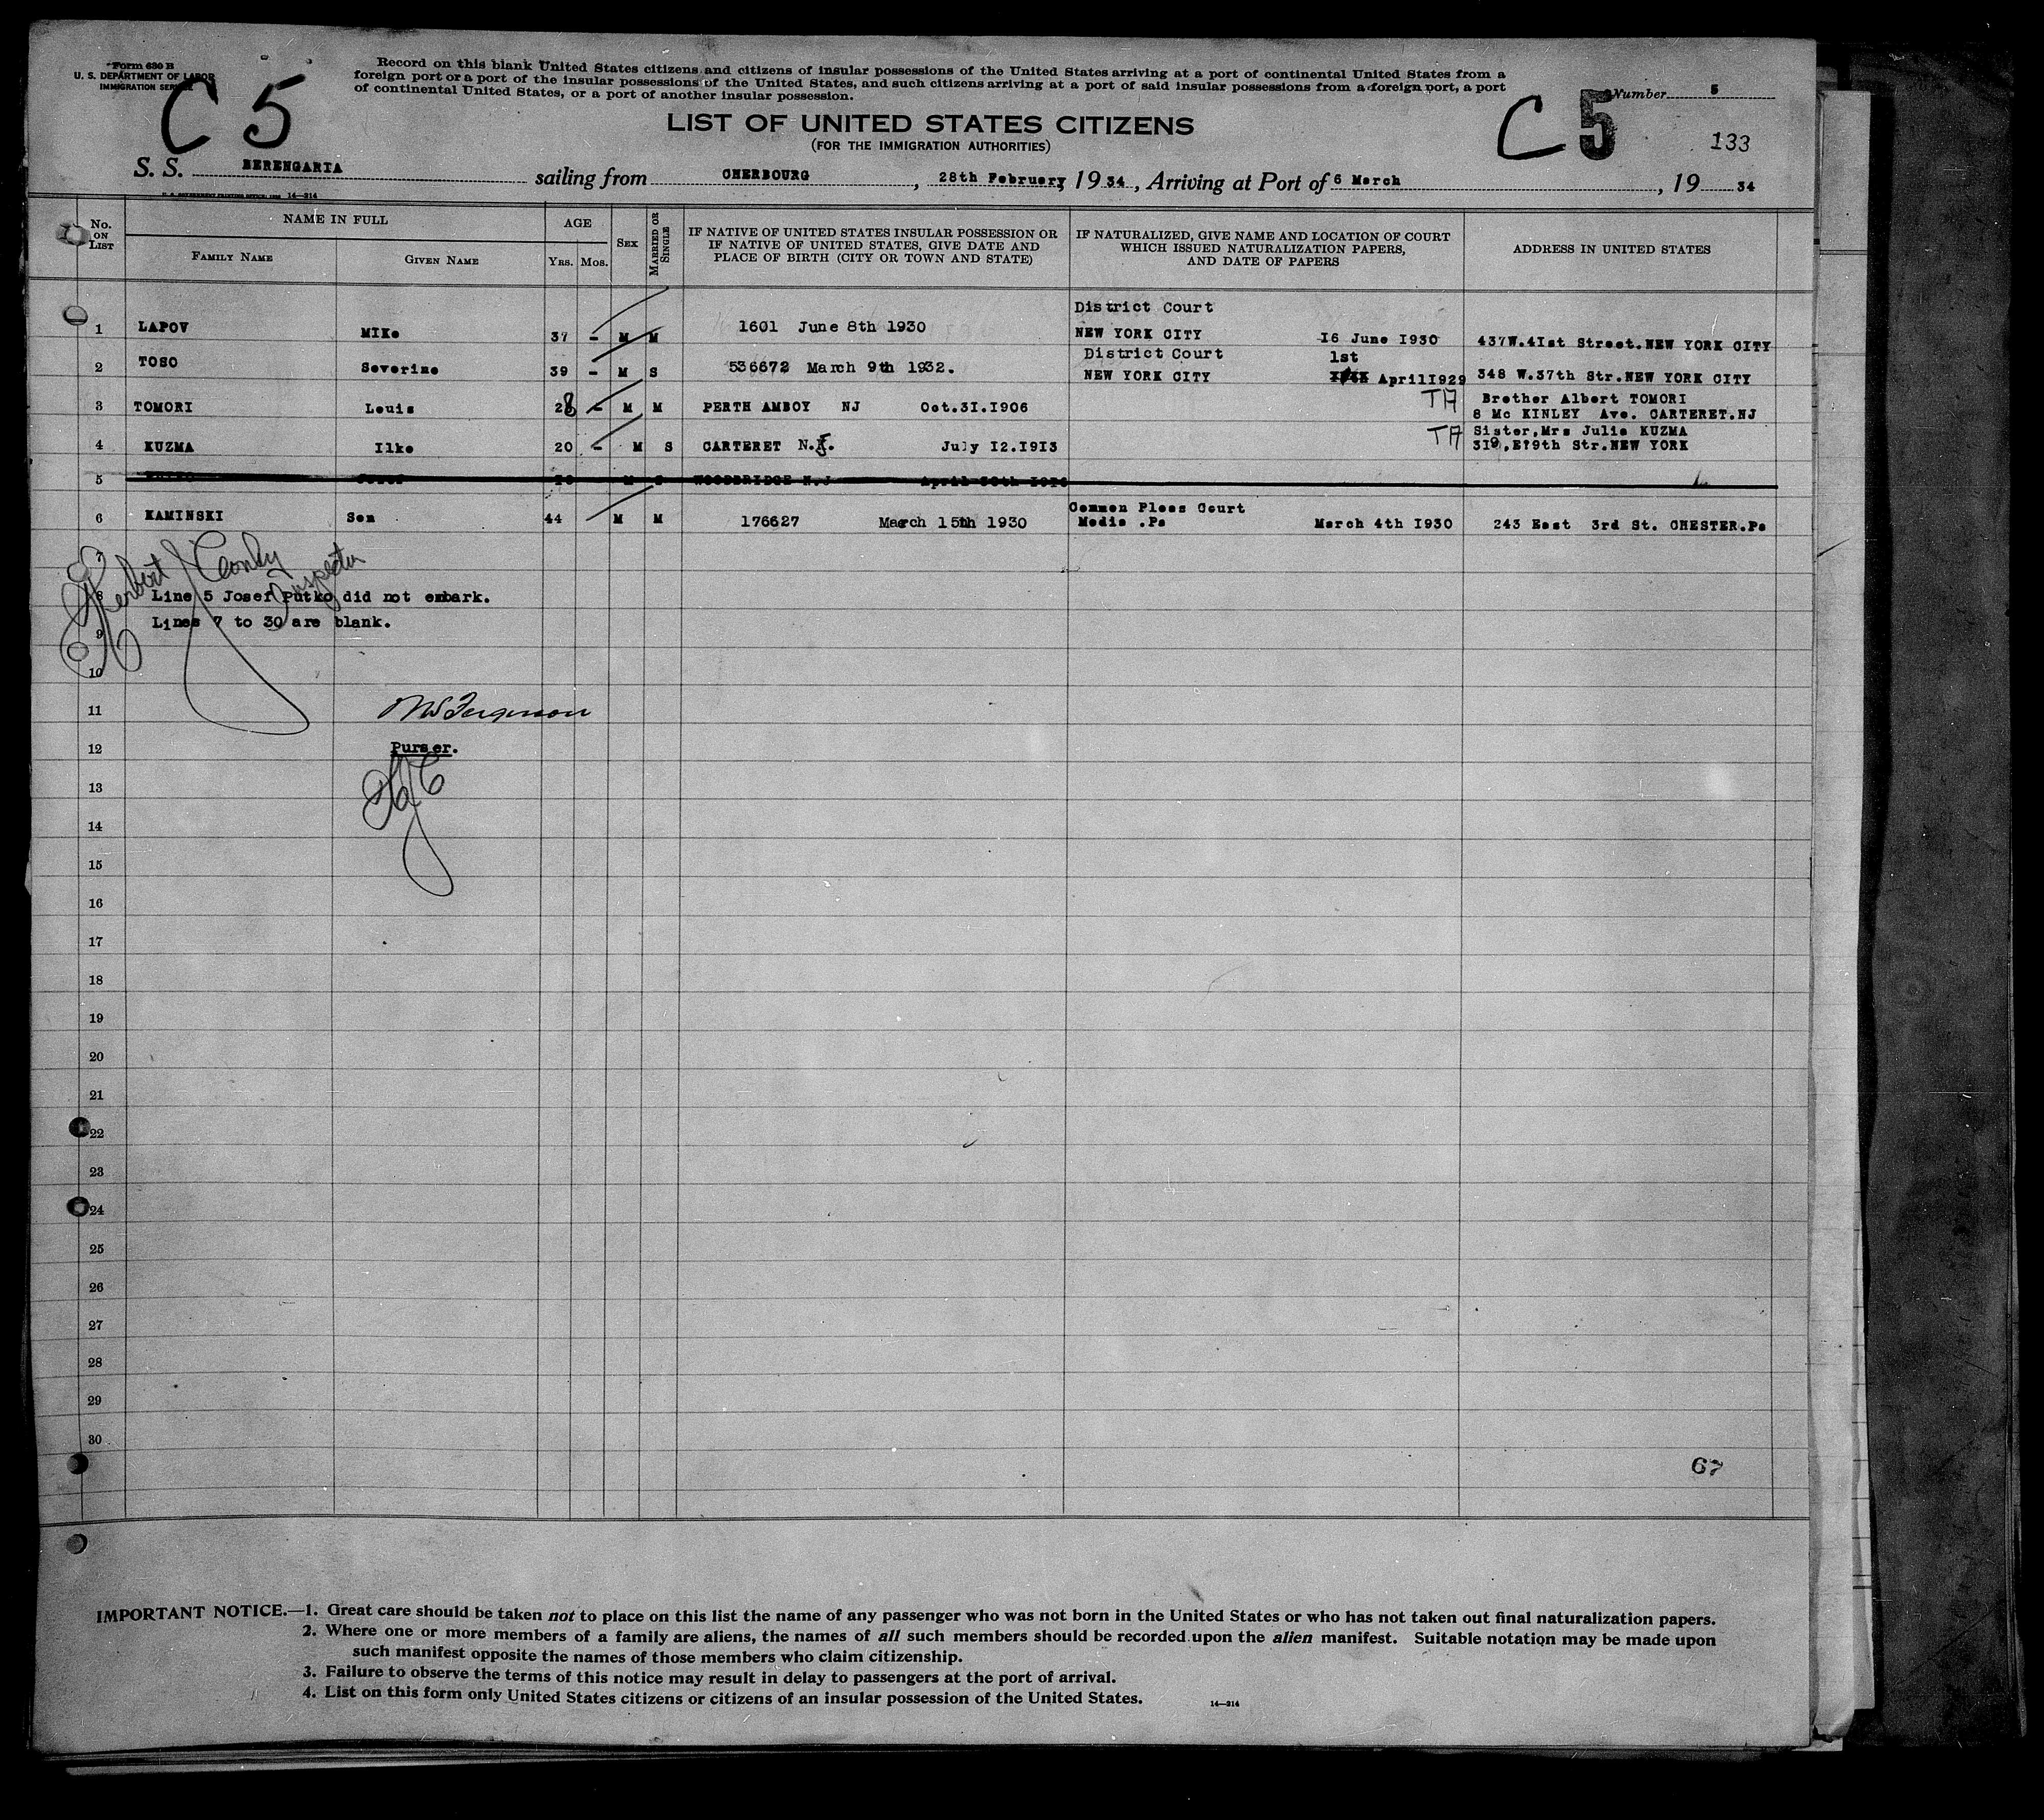 Form 630 B
U. S. DEPARTMENT OF LABOR
IMMIGRATION SERVICE
C 5
Record on this blank United States citizens and citizens of insular possessions of the United States arriving at a port of continental United States from a
foreign port or a port of the insular possessions of the United States, and such citizens arriving at a port of said insular possessions from a foreign port, a port
of continental United States, or a port of another insular possession.
Number 5
C 5
133
LIST OF UNITED STATES CITIZENS
(FOR THE IMMIGRATION AUTHORITIES)
S. S. BERENGARIA sailing from CHERBOURG, 28th February 19 34, Arriving at Port of 6 March, 19 34
14—214
No. ON LIST
NAME IN FULL
FAMILY NAME GIVEN NAME
AGE
YRS. MOS.
SEX
MARRIED OR SINGLE
IF NATIVE OF UNITED STATES INSULAR POSSESSION OR
IF NATIVE OF UNITED STATES, GIVE DATE AND
PLACE OF BIRTH (CITY OR TOWN AND STATE)
IF NATURALIZED, GIVE NAME AND LOCATION OF COURT
WHICH ISSUED NATURALIZATION PAPERS,
AND DATE OF PAPERS
ADDRESS IN UNITED STATES
District Court
1 LAPOV MIKe 37 - M M 1601 June 8th 1930 NEW YORK CITY 16 June 1930 437W.41st Street.NEW YORK CITY
District Court 1st
2 TOSO Severino 39 - M S 536672 March 9th 1932. NEW YORK CITY April1929 348 W.37th Str.NEW YORK CITY
3 TOMORI Louis 28 - M M PERTH AMBOY NJ Oct.31.1906 TA Brother Albert TOMORI
8 Mc KINLEY Ave. CARTERET.NJ
4 KUZMA Ilko 20 - M S CARTERET N.J. July 12.1913 TA Sister,Mrs Julia KUZMA
319,E?9th Str.NEW YORK
5 Josef M S WOODBRIDGE N.J April
6 KAMINSKI Sem 44 M M 176627 March 15th 1930 Common Pleas Court
Media .Pa March 4th 1930 243 East 3rd St. CHESTER.Pa
7
Herbert Inspector
8 Line 5 Josef Putko did not embark.
Lines 7 to 30 are blank.
9
10
11 Ferguson
12 Purser.
13
14
15
16
17
18
19
20
21
22
23
24
25
26
27
28
29
30
67
IMPORTANT NOTICE.—1. Great care should be taken not to place on this list the name of any passenger who was not born in the United States or who has not taken out final naturalization papers.
2. Where one or more members of a family are aliens, the names of all such members should be recorded upon the alien manifest. Suitable notation may be made upon
such manifest opposite the names of those members who claim citizenship.
3. Failure to observe the terms of this notice may result in delay to passengers at the port of arrival.
4. List on this form only United States citizens or citizens of an insular possession of the United States.
14—214